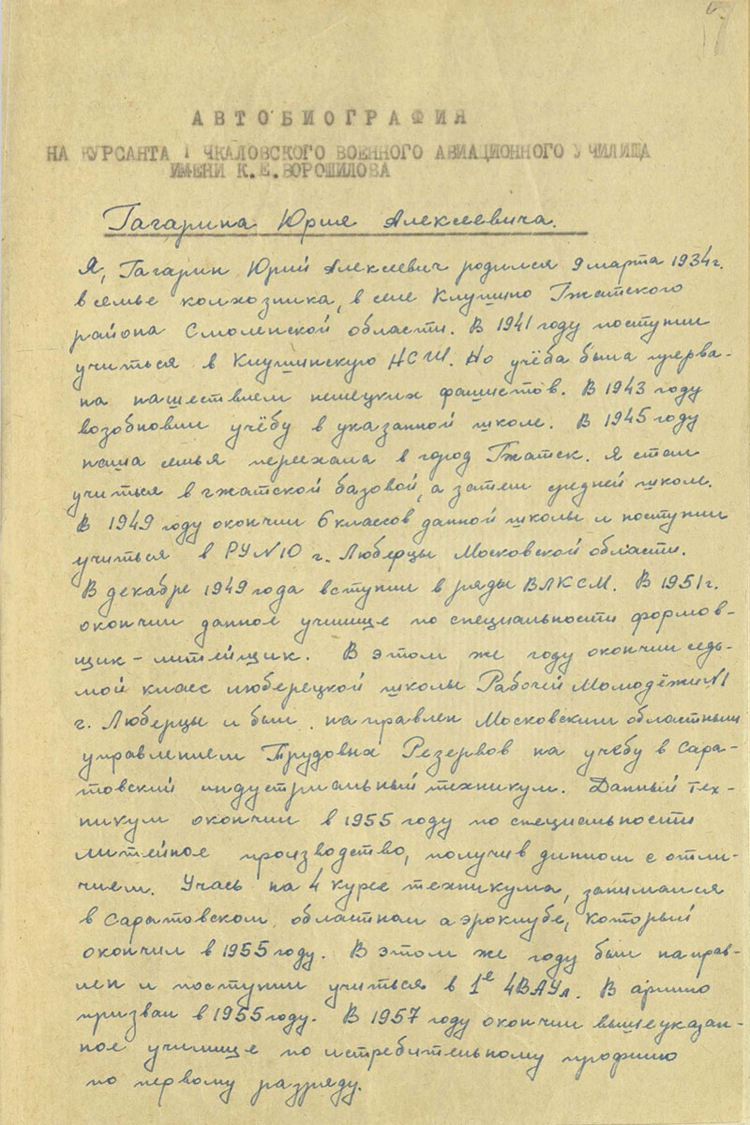 АВТОБИОГРАФИЯ
НА КУРСАНТА 1 ЧКАЛОВСКОГО ВОЕННОГО АВИАЦИОННОГО УЧИЛИЩА
ИМЕНИ К.Е.ВОРОШИЛОВА
Гагарина Юрия Алексеевича.
Я, Гагарин Юрий Алексеевич родился 9 марта 1934г.
в семье колхозника, в селе Клушино Гжатского
района Смоленской области. В 1941 году поступил
учиться в Клушинскую НСШ. Но учёба была прерва-
на нашествием немецких фашистов. В 1943 году
возобновил учёбу в указанной школе. В 1945 году
наша семья переехала в город Гжатск. Я стал
учиться в гжатской базовой, а затем средней школе.
В 1949 году окончил 6 классов данной школы и поступил
учиться в РУ N10 г. Люберцы Московской области.
В декабре 1949 года вступил в ряды ВЛКСМ. В 1951 г.
окончил данное училище по специальности формов-
щик-литейщик. В этом же году окончил седь-
мой класс люберецкой школы Рабочей Молодёжи N1
г. Люберцы и был направлен Московским областным
управлением Трудовых Резервов на учёбу в Сара-
товский индустриальный техникум. Данный тех-
никум окончил в 1955 году по специальности
литейное производство, получив диплом с отли-
чием. Учась на 4 курсе техникума, занимался
в Саратовском областном аэроклубе, который
окончил в 1955 году. В этом же году был направ-
лен и поступил учиться в 1е ЧВАУл. В армию
призван в 1955 году. В 1957 году окончил вышеуказан-
ное училище по истребительному профилю
по первому разряду.